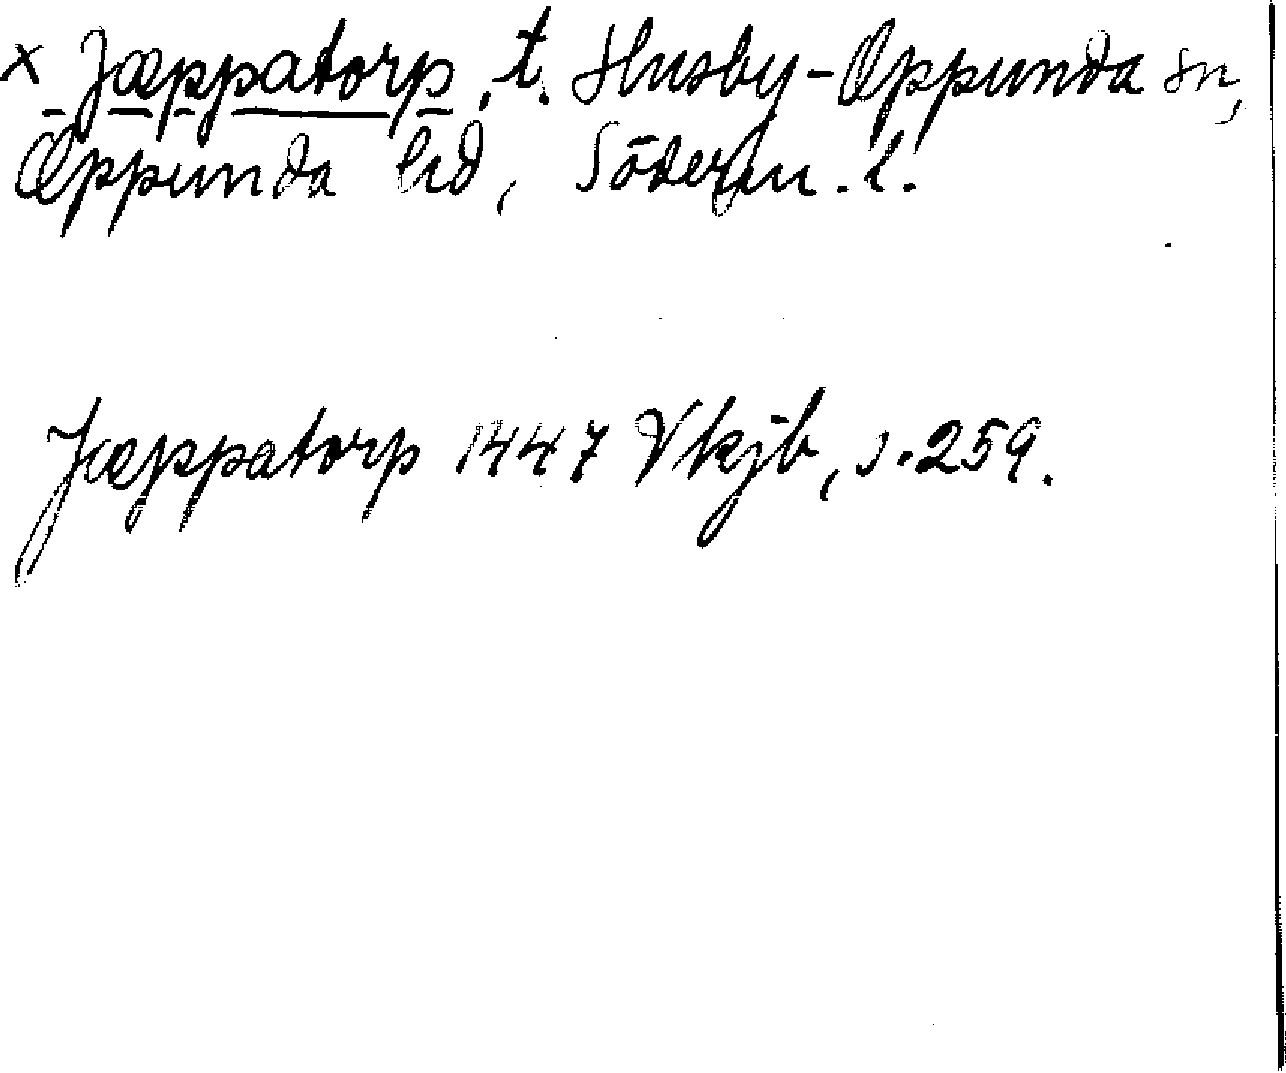 x Jæppatorp, t. Husby-Oppunda sn,
Oppunda hd, Söderm. l.
Jæppatorp 1447 Vkjb, s. 259.